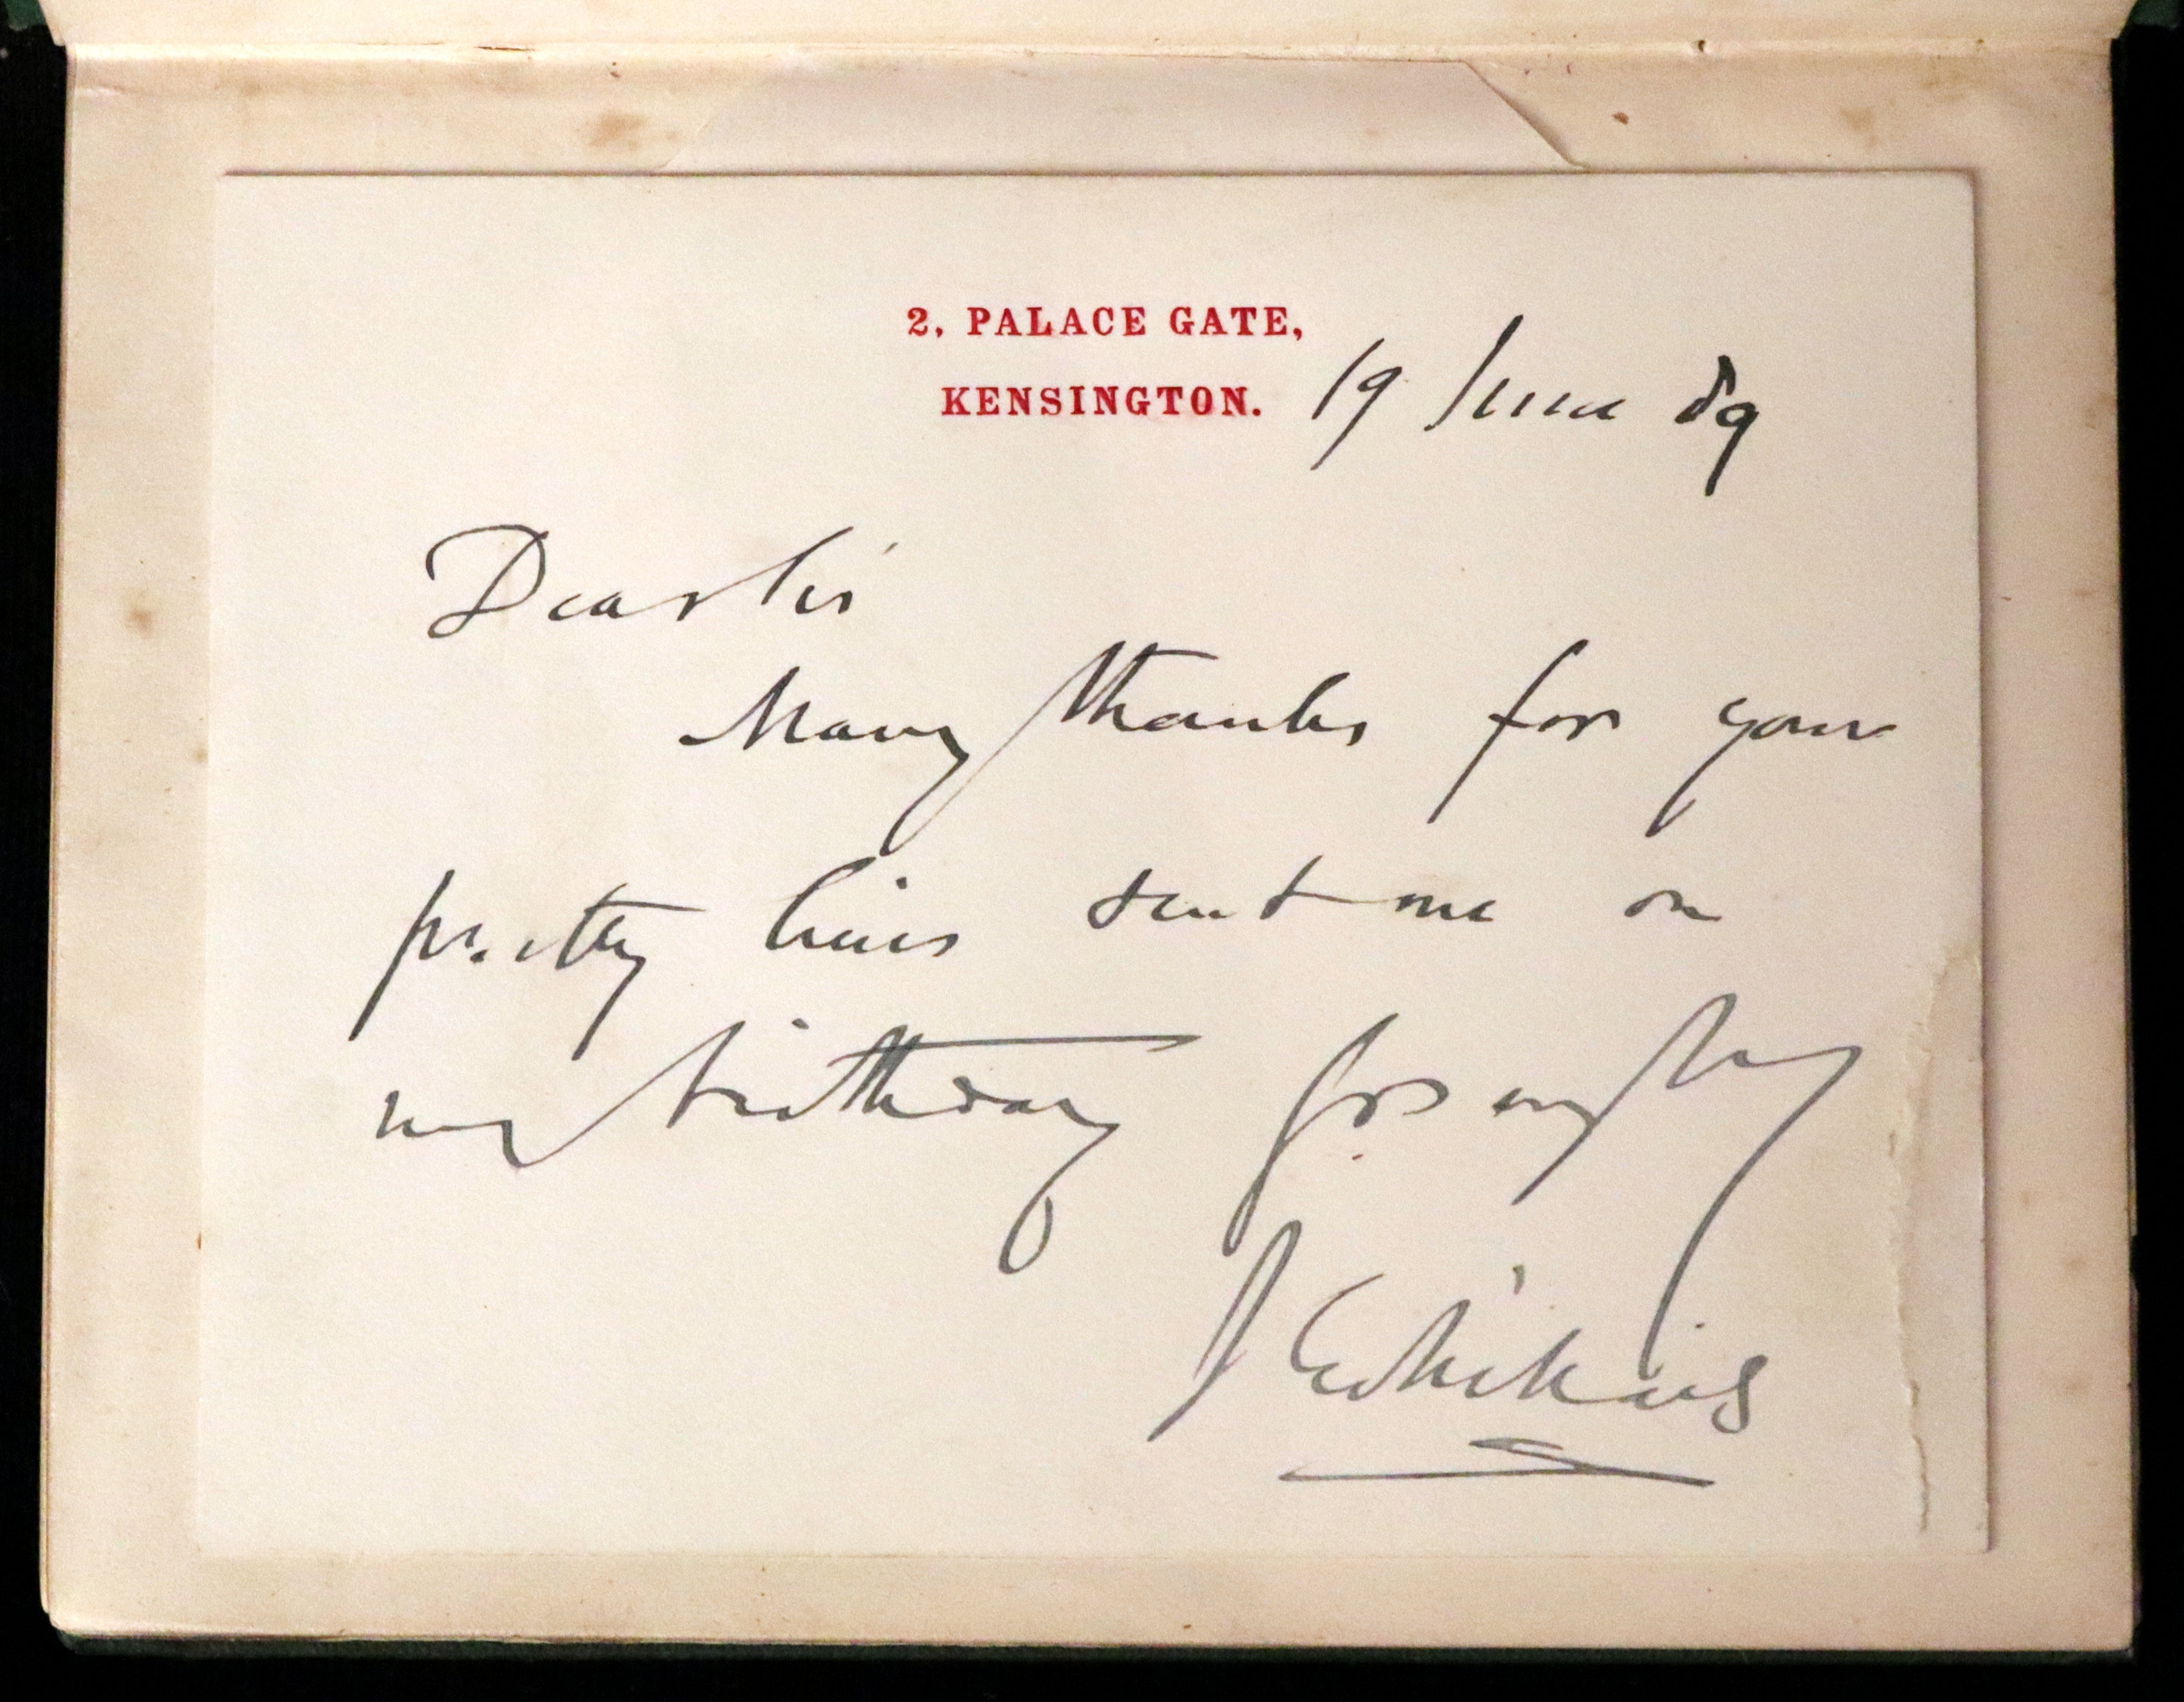 2, PALACE GATE,
KENSINGTON. 19 June 89
Dear Sir
Many thanks for your
pretty lines sent me on
my birthday
J E Millais